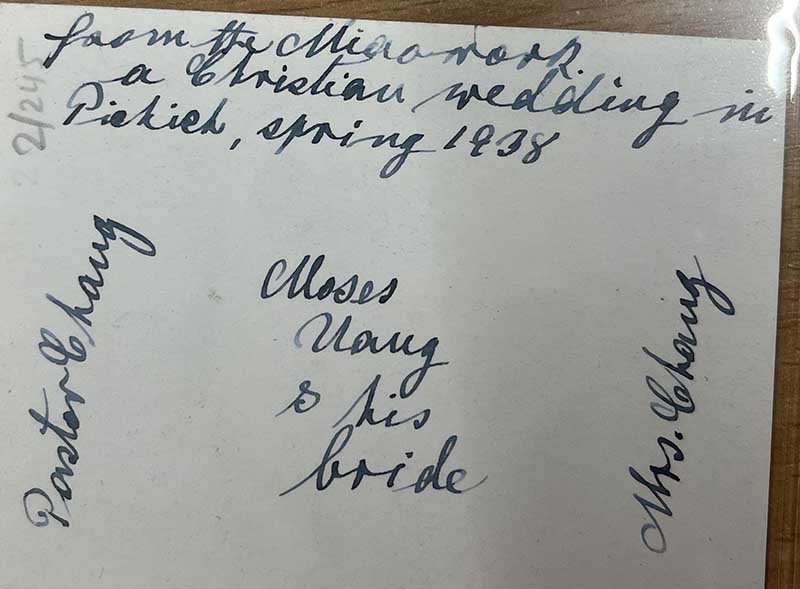 from the Miao work.
a Christian wedding in
Pichieh, spring 1938
2/245
Pastor Chang
Moses
Uang
& his
bride
Mrs. Chang